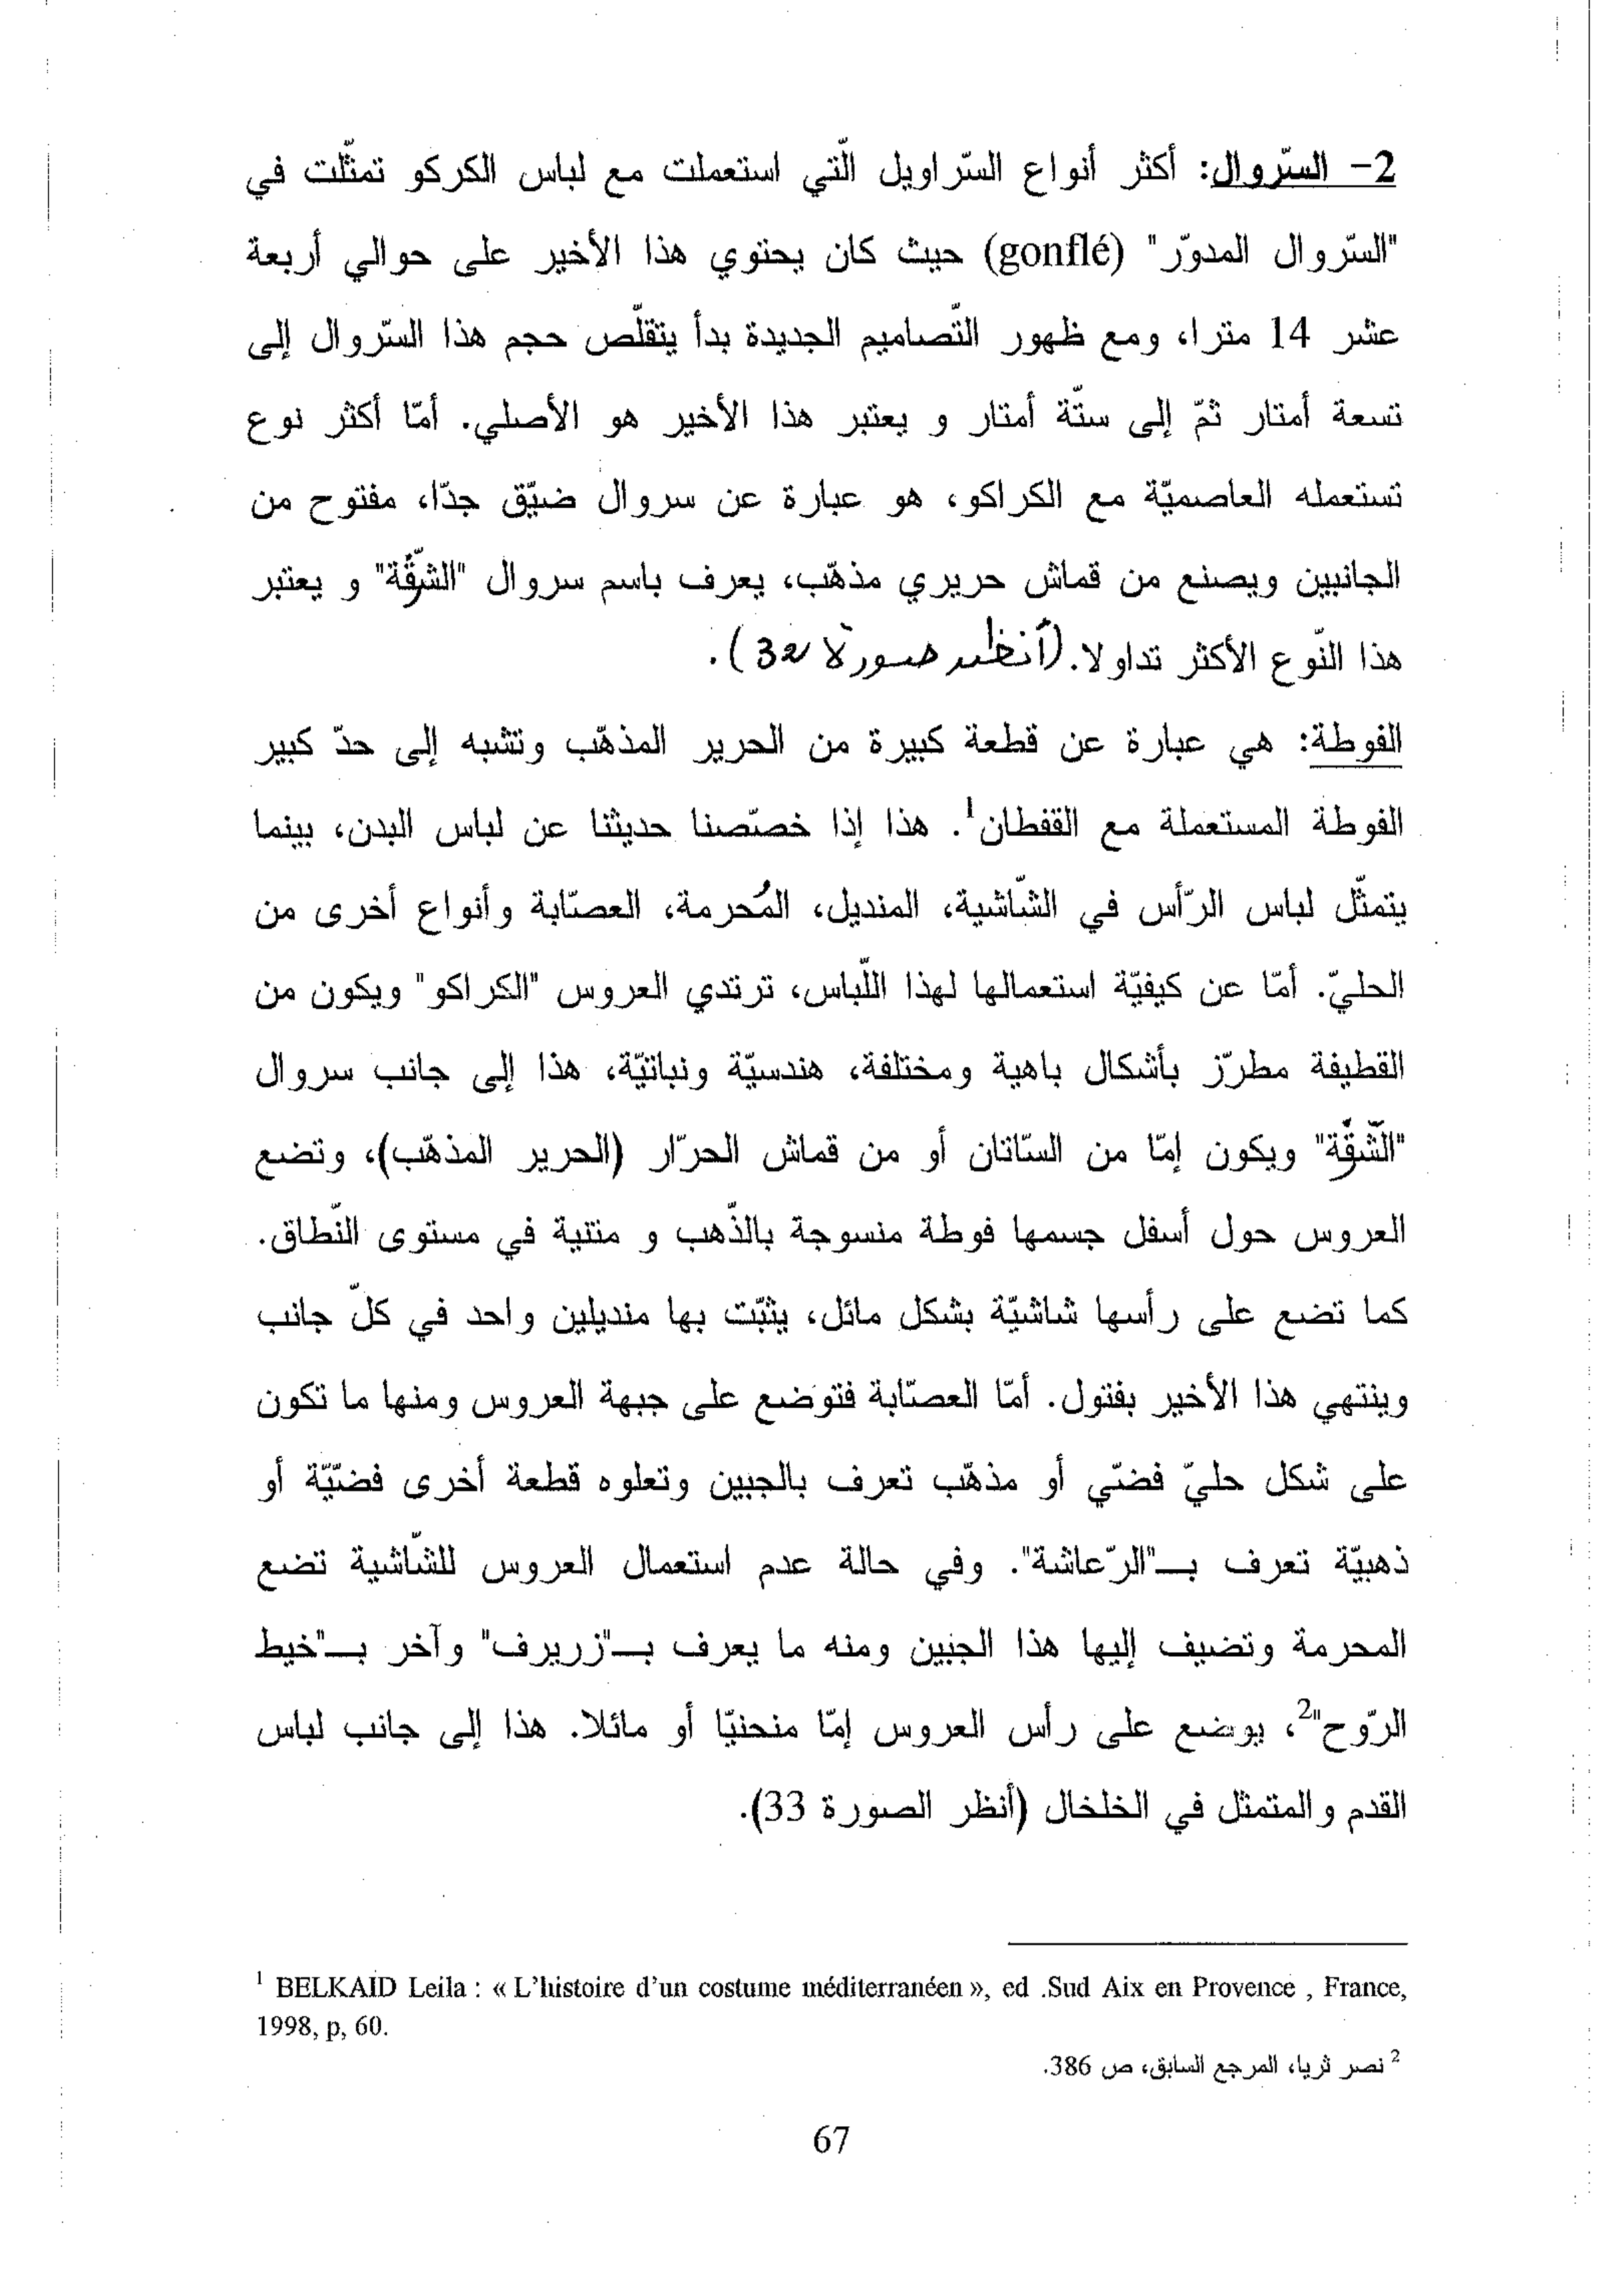 2- السّروال: أكثر أنواع السّراويل الّتي استعملت مع لباس الكركو تمثّلت في
"السّروال المدوّر" (gonflé) حيث كان يحتوي هذا الأخير على حوالي أربعة
عشر 14 مترا، ومع ظهور التّصاميم الجديدة بدأ يتقلّص حجم هذا السّروال إلى
تسعة أمتار ثمّ إلى ستّة أمتار و يعتبر هذا الأخير هو الأصلي. أمّا أكثر نوع
تستعمله العاصميّة مع الكراكو، هو عبارة عن سروال ضيّق جدّا، مفتوح من
الجانبين ويصنع من قماش حريري مذهّب، يعرف باسم سروال "الشڨّة" و يعتبر
هذا النّوع الأكثر تداولا. (أنظر صورة 32).
الفوطة: هي عبارة عن قطعة كبيرة من الحرير المذهّب وتشبه إلى حدّ كبير
الفوطة المستعملة مع القفطان1. هذا إذا خصّصنا حديثنا عن لباس البدن، بينما
يتمثّل لباس الرّأس في الشّاشية، المنديل، المُحرمة، العصّابة وأنواع أخرى من
الحليّ. أمّا عن كيفيّة استعمالها لهذا اللّباس، ترتدي العروس "الكراكو" ويكون من
القطيفة مطرّز بأشكال باهية ومختلفة، هندسيّة ونباتيّة، هذا إلى جانب سروال
"الشّڨّة" ويكون إمّا من السّاتان أو من قماش الحرّار (الحرير المذهّب)، وتضع
العروس حول أسفل جسمها فوطة منسوجة بالذّهب و منتية في مستوى النّطاق.
كما تضع على رأسها شاشيّة بشكل مائل، يثبّت بها منديلين واحد في كلّ جانب
وينتهي هذا الأخير بفتول. أمّا العصّابة فتوضع على جبهة العروس ومنها ما تكون
على شكل حليّ فضّي أو مذهّب تعرف بالجبين وتعلوه قطعة أخرى فضّيّة أو
ذهبيّة تعرف بـ"الرّعاشة". وفي حالة عدم استعمال العروس للشّاشية تضع
المحرمة وتضيف إليها هذا الجبين ومنه ما يعرف بـ"زريرف" وآخر بـ"خيط
الرّوح"2، يوضع على رأس العروس إمّا منحنيّا أو مائلا. هذا إلى جانب لباس
القدم والمتمثل في الخلخال (أنظر الصورة 33).
1 BELKAID Leila : « L'histoire d'un costume méditerranéen », ed .Sud Aix en Provence , France,
1998, p, 60.
2 نصر ثريا، المرجع السابق، ص 386.
67